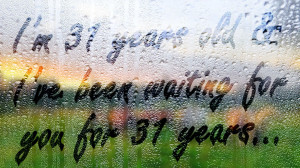 I'm 31 years old &
I've been waiting for
you for 31 years...